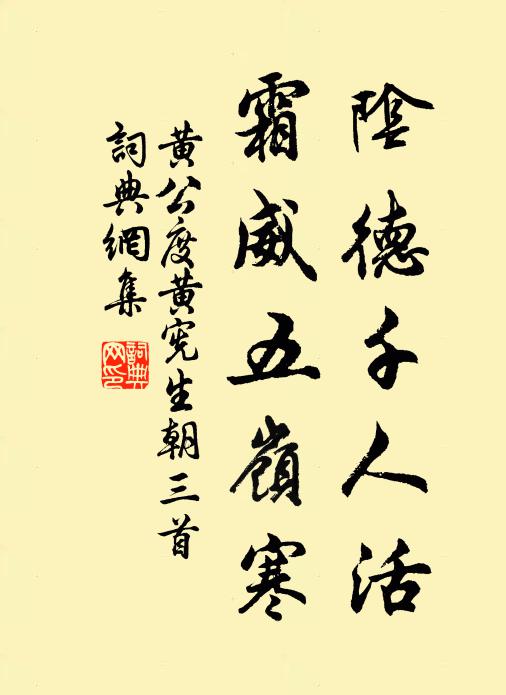 陰德千人活
霜威五嶺寒
黃公度黃憲生朝三首
詞典網集
詞典網印